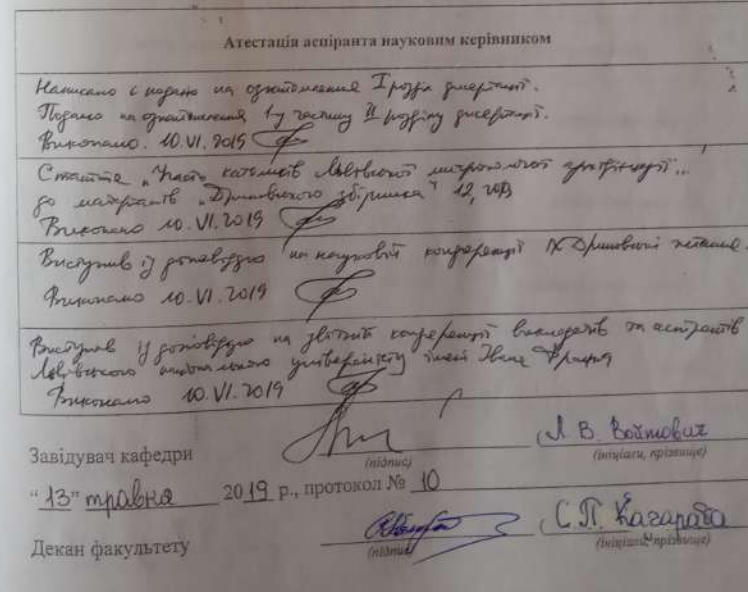 Атестація аспіранта науковим керівником
Написано і подано на ознайомлення I розділ дисертації.
Подано на ознайомлення 1-у частину II розділу дисертації.
Виконано. 10.VI.2019
Стаття „ католиків Львівської митрополичої ...
до матеріалів „Дринівського збірника" 12,
Виконано 10.VI.2019
Виступив із доповіддю на науковій конференції IX Дринівські читання.
Виконано 10.VI.2019
Виступав із доповіддю на звітній конференції викладачів та аспірантів
Львівського національного університету імені Івана Франка
Виконано 10.VI.2019
Завідувач кафедри Л. В. Войтович
(підпис) (ініціали, прізвище)
"13" травня 2019 р., протокол № 10
Декан факультету С. П. Качараба
(підпис) (ініціали, прізвище)